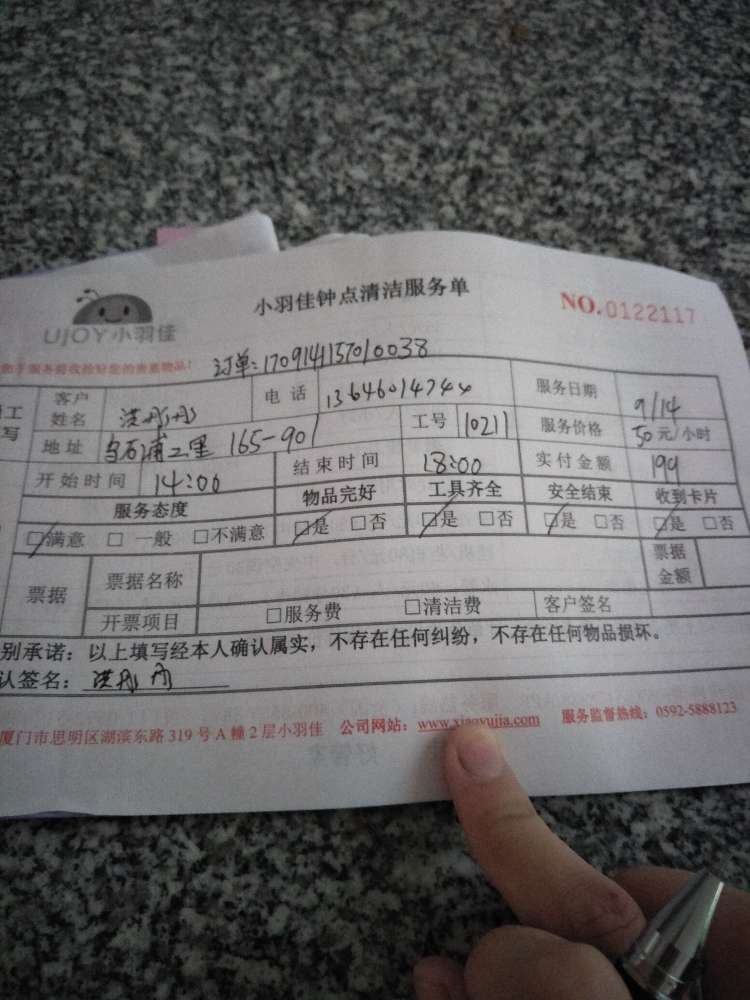 小羽佳钟点清洁服务单
NO.0122117
UJOY小羽佳
订单:170914157010038
客户姓名 洪彤彤 电话 13646014744 服务日期 9/14
地址 乌石浦二里 165-901 工号 10211 服务价格 50元/小时
开始时间 14:00 结束时间 18:00 实付金额 199
服务态度 物品完好 工具齐全 安全结束 收到卡片
□满意 □一般 □不满意 □是 □否 □是 □否 □是 □否 □是 □否
票据 票据名称 票据金额
开票项目 □服务费 □清洁费 客户签名
别承诺：以上填写经本人确认属实，不存在任何纠纷，不存在任何物品损坏。
认签名：洪彤彤
厦门市思明区湖滨东路319号A幢2层小羽佳 公司网站：www.xiaoyujia.com 服务监督热线：0592-5888123